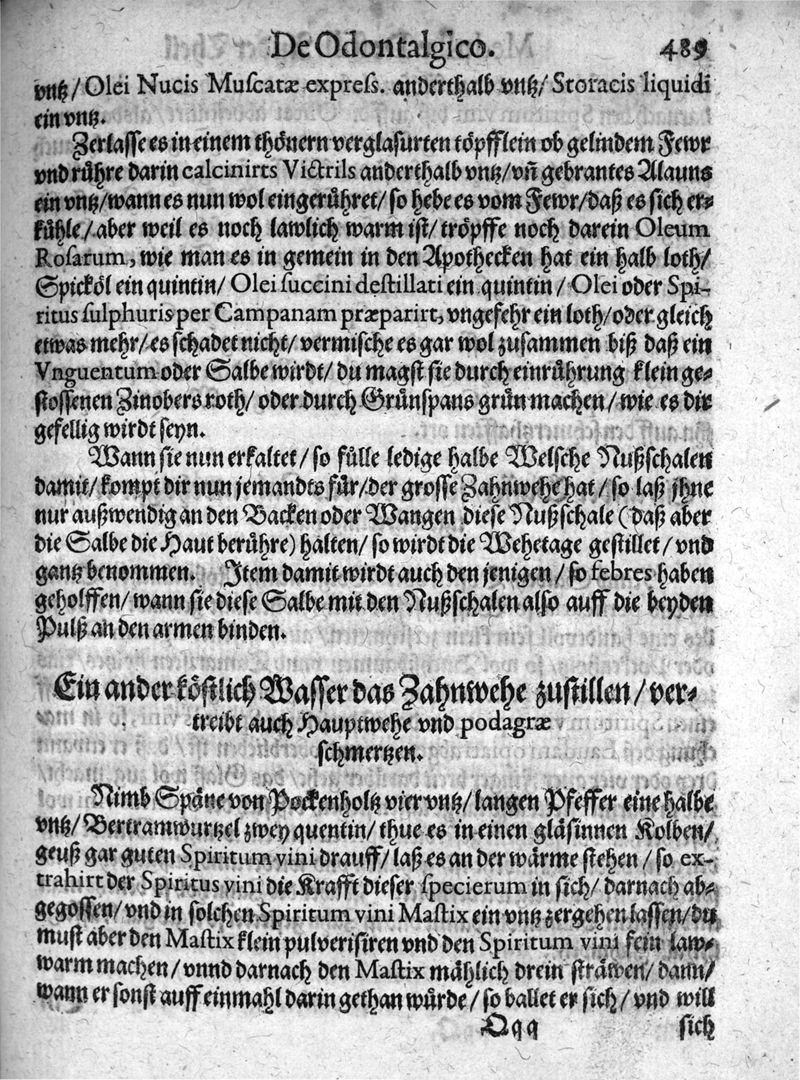 De Odontalgico. 489
vntz/ Olei Nucis Muscatæ express. anderthalb vntz/ Storacis liquidi
ein vntz.
Zerlasse es in einem thönern verglasurten töpfflein ob gelindem Fewr
vnd rühre darin calcinirts Victrils anderthalb vntz/ vñ gebrantes Alauns
ein vntz/ wann es nun wol eingerühret/ so hebe es vom Fewr/ daß es sich er-
kühle/ aber weil es noch lawlich warm ist/ tröpffe noch darein Oleum
Rosarum, wie man es in gemein in den Apothecken hat ein halb loth/
Spicköl ein quintin/ Olei succini destillati ein quintin/ Olei oder Spi-
ritus sulphuris per Campanam præparirt, vngefehr ein loth/ oder gleich
etwas mehr/ es schadet nicht/ vermische es gar wol zusammen biß daß ein
Vnguentum oder Salbe wirdt/ du magst sie durch einrührung klein ge-
stossenen Zinobers roth/ oder durch Grünspans grün machen/ wie es dir
gefellig wirdt seyn.
Wann sie nun erkaltet/ so fülle ledige halbe Welsche Nußschalen
damit/ kompt dir nun jemandts für/ der grosse Zahnwehe hat/ so laß jhne
nur außwendig an den Backen oder Wangen diese Nußschale (daß aber
die Salbe die Haut berühre) halten/ so wirdt die Wehetage gestillet/ vnd
gantz benommen. Item damit wirdt auch den jenigen/ so febres haben
geholffen/ wann sie diese Salbe mit den Nußschalen also auff die beyden
Pulß an den armen binden.
Ein ander köstlich Wasser das Zahnwehe zustillen/ ver-
treibt auch Hauptwehe vnd podagræ
schmertzen.
Nimb Späne von Pockenholtz vier vntz/ langen Pfeffer eine halbe
vntz/ Bertramwurtzel zwey quentin/ thue es in einen gläsinnen Kolben/
geuß gar guten Spiritum vini drauff/ laß es an der wärme stehen/ so ex-
trahirt der Spiritus vini die Krafft dieser specierum in sich/ darnach ab-
gegossen/ vnd in solchen Spiritum vini Mastix ein vntz zergehen lassen/ du
must aber den Mastix klein pulverisiren vnd den Spiritum vini fein law-
warm machen/ vnnd darnach den Mastix mählich drein sträwen/ dann/
wann er sonst auff einmahl darin gethan würde/ so ballet er sich/ vnd will
Qqq sich